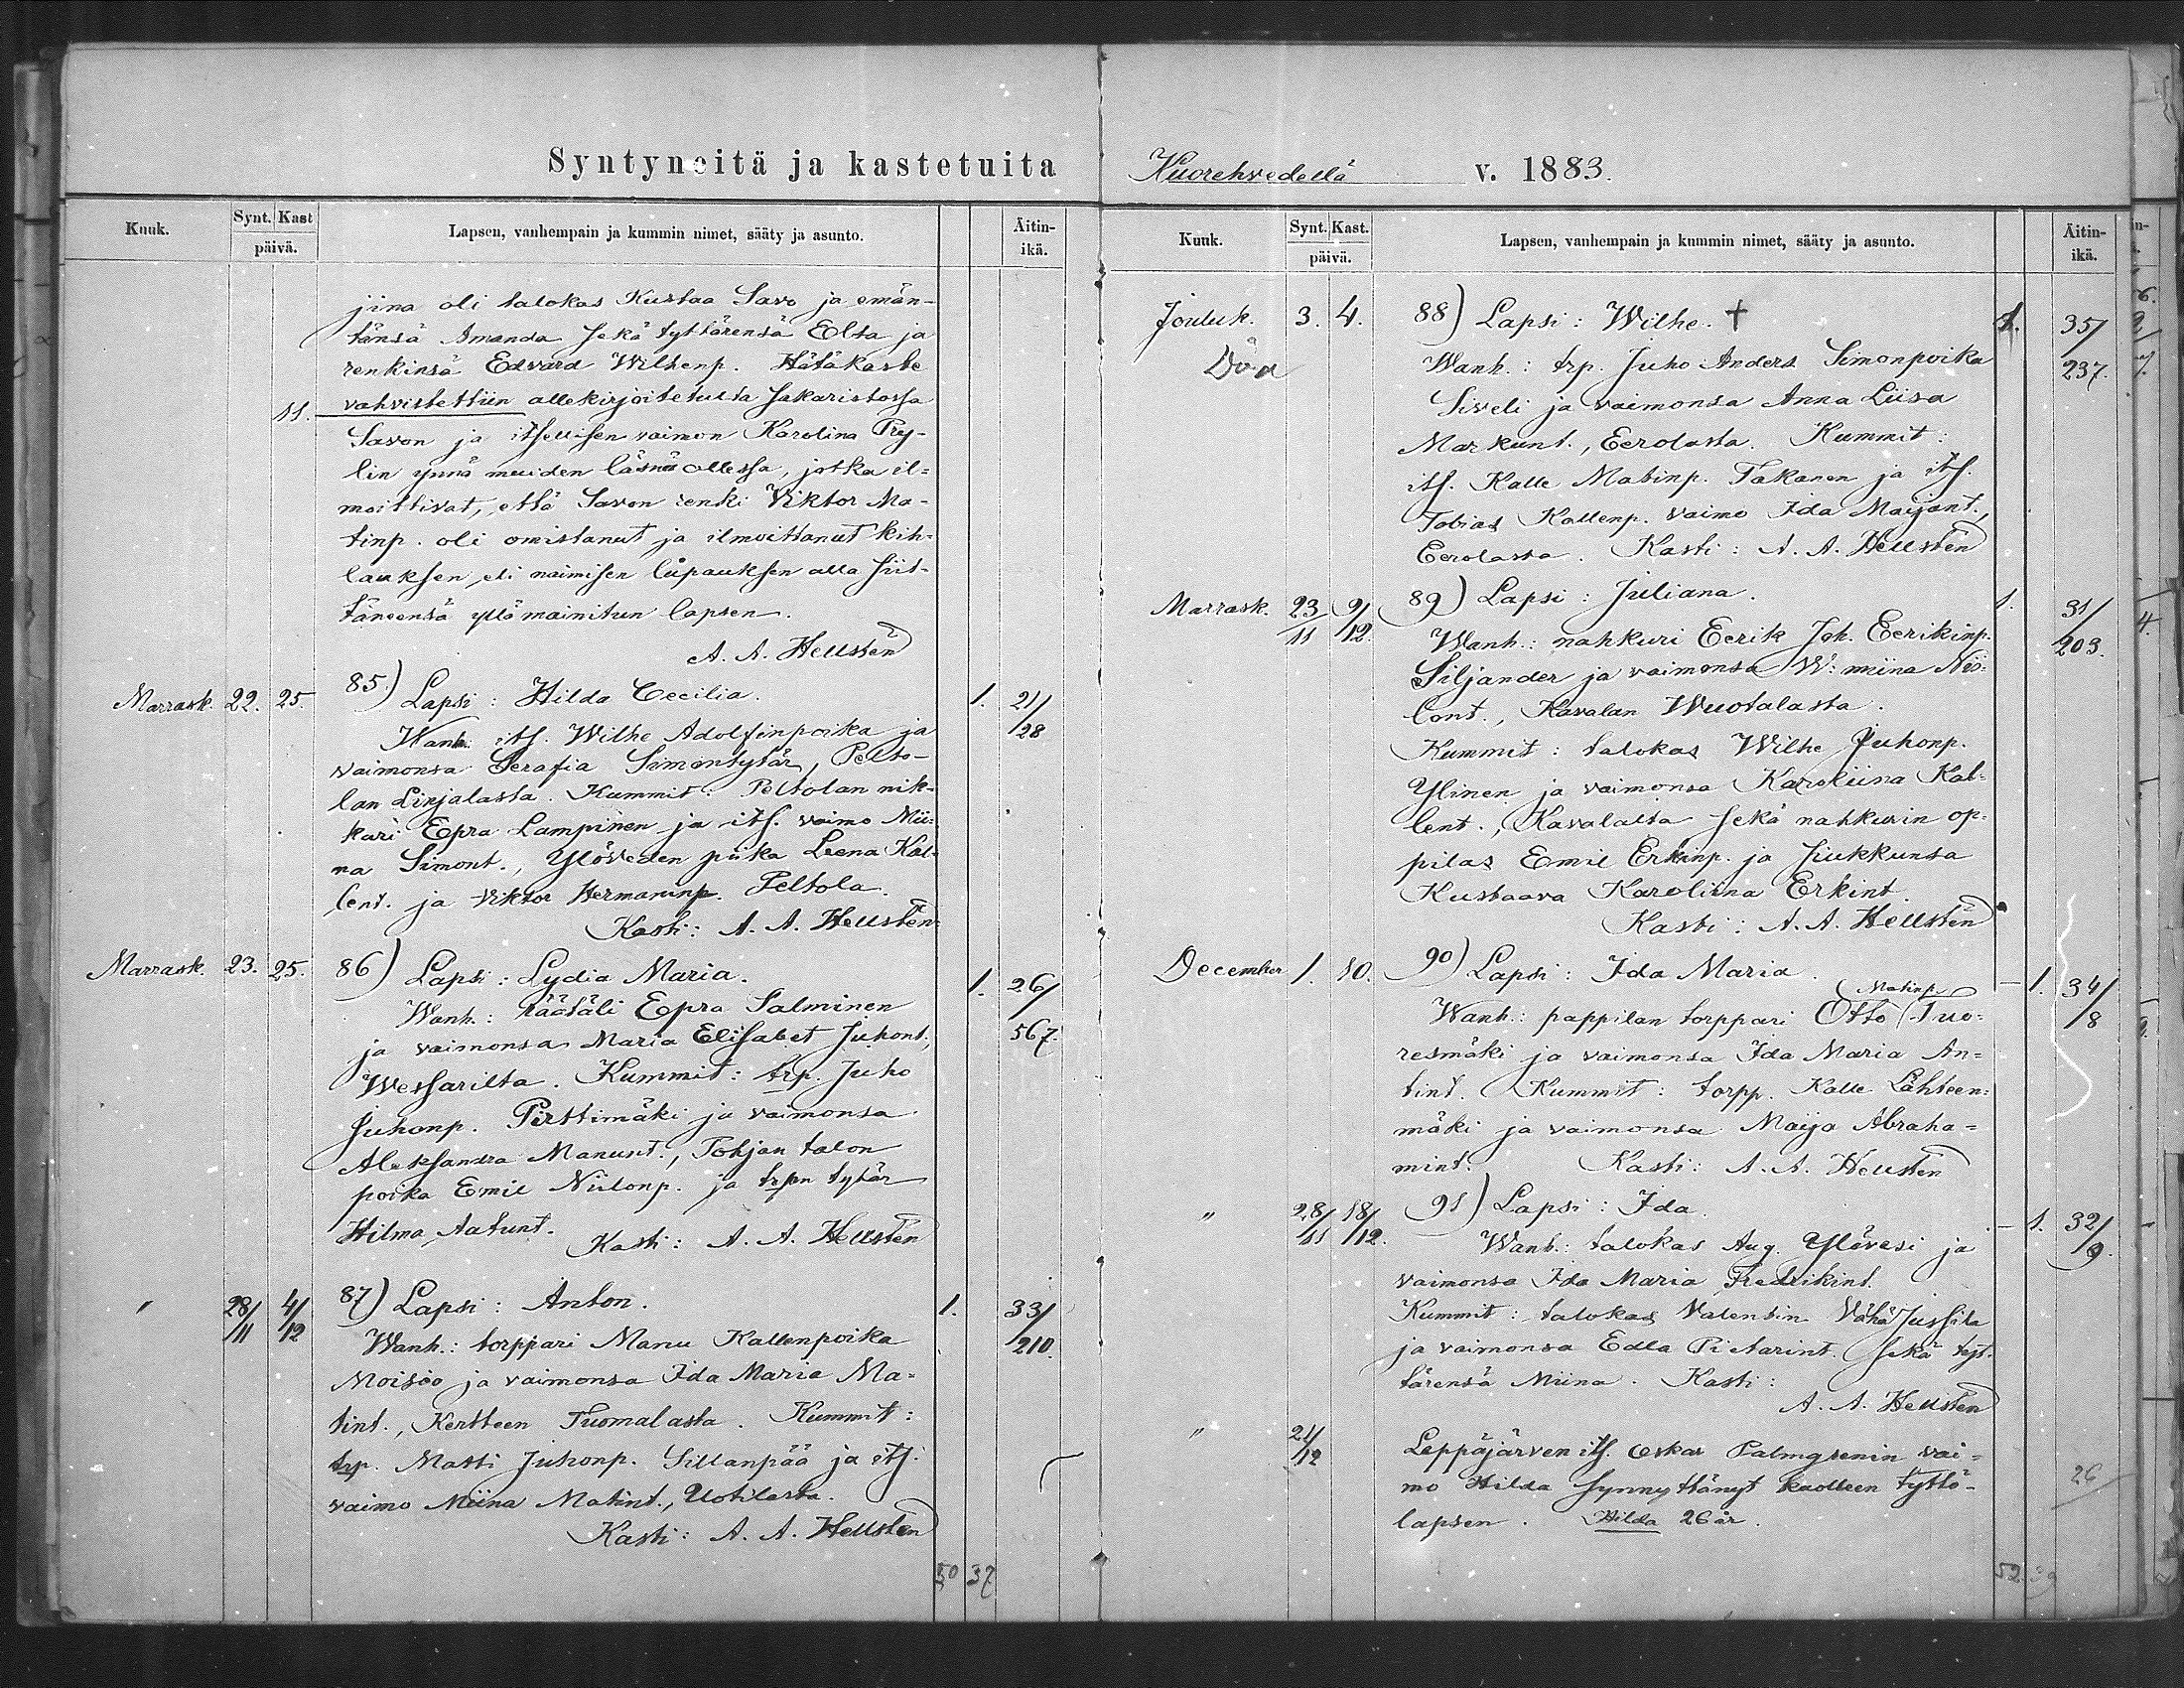 Syntyneitä ja kastetuita
Kuuk. Synt. Kast päivä. Lapsen, vanhempain ja kummin nimet, sääty ja asunto. Äitin-ikä.
jina oli talokas Kustaa Savo ja emän-
tänsä Amanda sekä tyttärensä Elta ja
renkinsä Edvard Wilhenp. Hätäkaste
11. vahvistettiin allekirjoitetulta sakaristossa
Savon ja itsellisen vaimon Karolina Pry-
lin ynnä muiden läsnä ollessa, jotka il-
moittivat, että Savon renki Viktor Ma-
tinp. oli omistanut ja ilmoittanut kih-
lauksen eli naimisen lupauksen alla siit-
täneensä yllä mainitun lapsen.
A. A. Hellstén
Marrask. 22. 25. 85) Lapsi: Hilda Cecilia. 1. 21/28
Wanh. its. Wilhe Adolfinpoika ja
vaimonsa Serafia Simontytär, Pelto-
lan Linjalasta. Kummit: Peltolan nik-
kari Epra Lampinen ja its. vaimo Mii-
na Simont., Ylöveden piika Leena Kal-
lent. ja Viktor Hermaninp. Peltola.
Kasti: A. A. Hellstén
Marrask. 23. 25. 86) Lapsi: Lydia Maria. 1. 26/567.
Wanh.: räätäli Epra Salminen
ja vaimonsa Maria Elisabet Juhont.,
Wessarilta. Kummit: trp. Juho
Juhonp. Pirttimäki ja vaimonsa
Aleksandra Manunt., Pohjan talon
poika Emil Niilonp. ja trpn tytär
Hilma Aatunt.
Kasti: A. A. Hellstén
" 28/11 4/12 87) Lapsi: Anton. 1. 33/210.
Wanh.: torppari Manu Kallenpoika
Moisio ja vaimonsa Ida Maria Ma-
tint., Kertteen Tuomalasta. Kummit:
trp. Matti Juhonp. Sillanpää ja its.
vaimo Miina Matint., Uotilasta.
Kasti: A. A. Hellstén
50 37
Kuorehvedellä v. 1883.
Kuuk. Synt. Kast. päivä. Lapsen, vanhempain ja kummin nimet, sääty ja asunto. Äitin-ikä.
Jouluk. 3. 4. 88) Lapsi: Wilhe. † 1. 35/237.
Död Wanh.: trp. Juho Anders Simonpoika
Siveli ja vaimonsa Anna Liisa
Markunt., Eerolasta. Kummit:
its. Kalle Matinp. Takanen ja its.
Tobias Kallenp. vaimo Ida Maijant.,
Eerolasta. Kasti: A. A. Hellstén
Marrask. 23/11 9/12. 89) Lapsi: Juliana. 1. 31/203.
Wanh.: nahkuri Eerik Joh. Eerikinp.
Siljander ja vaimonsa W:miina Nii-
lont., Kavalan Wuotalasta.
Kummit: talokas Wilhe Juhonp.
Ylinen ja vaimonsa Karoliina Kal-
lent., Kavalalta sekä nahkurin op-
pilas Emil Erkinp. ja siukkunsa
Kustaava Karoliina Erkint.
Kasti: A. A. Hellstén
December 1. 10. 90) Lapsi: Ida Maria. — 1. 34/8
Matinp.
Wanh.: pappilan torppari Otto Tuo-
resmäki ja vaimonsa Ida Maria An-
tint. Kummit: torpp. Kalle Lähteen-
mäki ja vaimonsa Maija Abraha-
mint. Kasti: A. A. Hellstén
" 28/11 18/12. 91) Lapsi: Ida. — 1. 32/9.
Wanh.: talokas Aug. Ylövesi ja
vaimonsa Ida Maria Fredrikint.
Kummit: talokas Valentin Vähä Jussila
ja vaimonsa Edla Pietarint. sekä tyt-
tärensä Miina. Kasti:
A. A. Hellstén
" 21/12 Leppäjärven its. Oskar Palmgrenin vai-
mo Hilda synnyttänyt kuolleen tyttö- 26
lapsen. Hilda 26 år.
52. 39